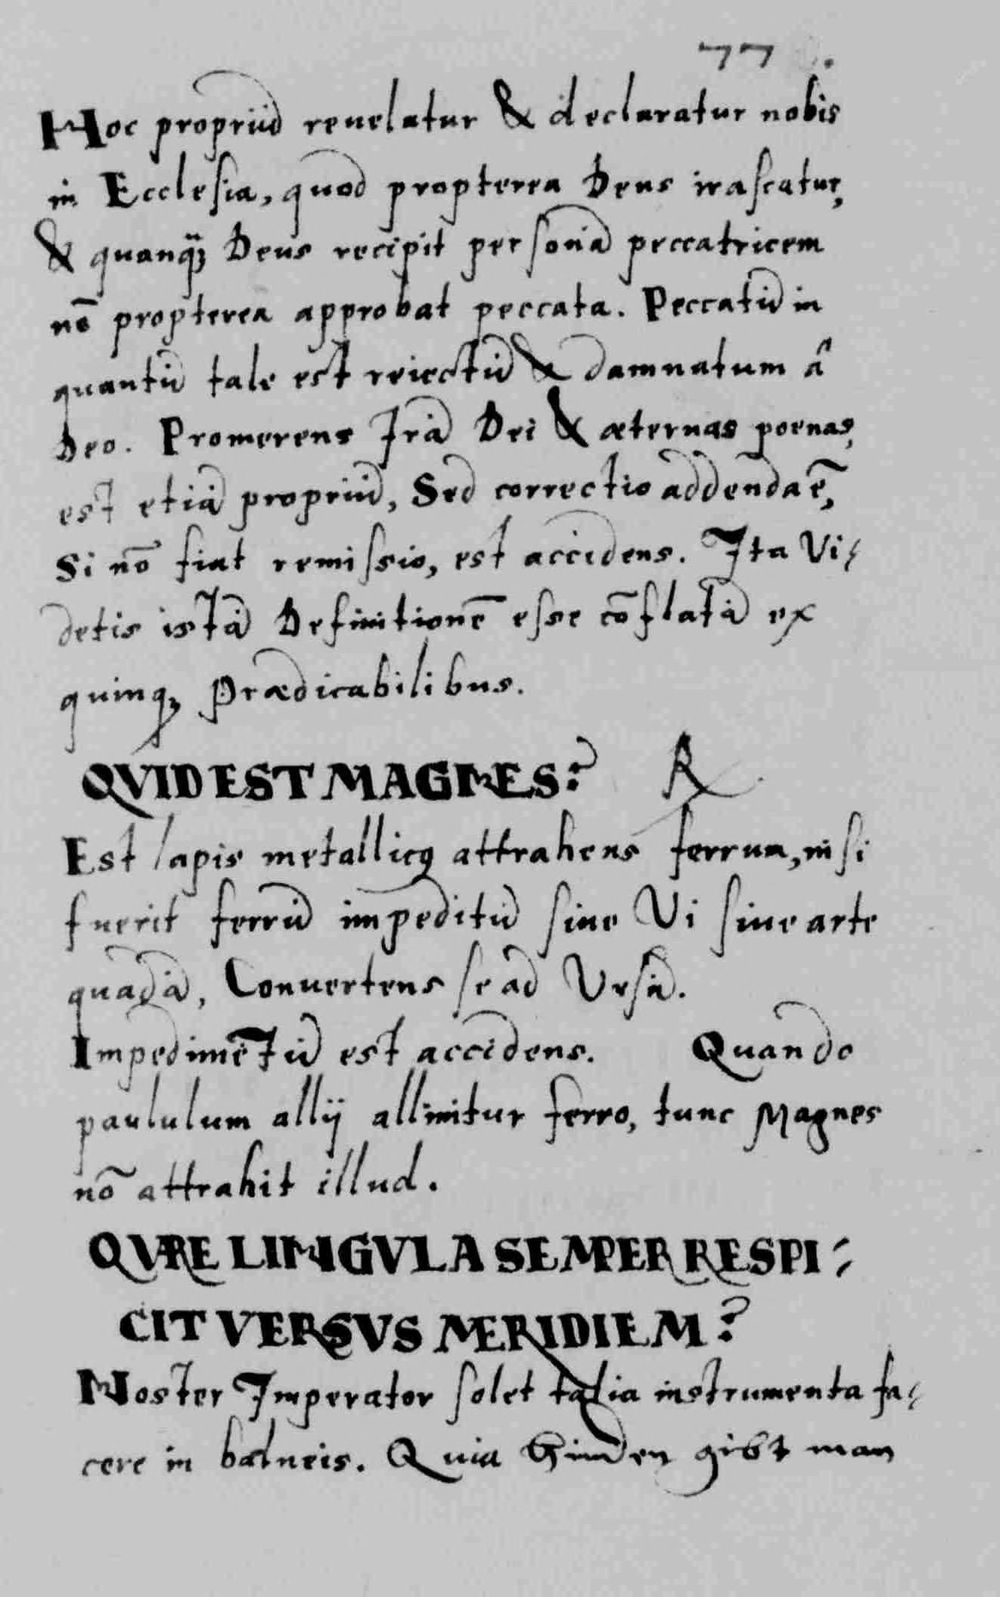 77
Hoc propriũ reuelatur & declaratur nobis
in Ecclesia, quod propterea Deus irascatur,
& quanqꝫ Deus recipit personã peccatricem
nõ propterea approbat peccata. Peccatũ in
quantũ tale est reiectũ & damnatum â
Deo. Promerens Irã Dei & æternas poenas,
est etiã propriũ, Sed correctio addenda ẽ,
Si nõ fiat remissio, est accidens. Ita Vi-
detis istã Definitionẽ esse cõflatã ex
quinqꝫ Prædicabilibus.
QVID EST MAGNES?
Est lapis metallicꝰ attrahens ferrum, nisi
fuerit ferrũ impeditũ siue Vi siue arte
quadã, Conuertens se ad Vrsã.
Impedimẽtũ est accidens. Quando
paululum allij allinitur ferro, tunc Magnes
nõ attrahit illud.
QVRE LINGVLA SEMPER RESPI-
CIT VERSVS MERIDIEM?
Noster Imperator solet talia instrumenta fa-
cere in balneis. Quia hinden gibt man